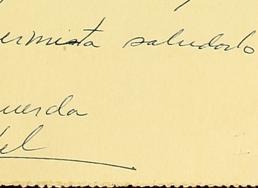 ermita saludarlo
uerda
el